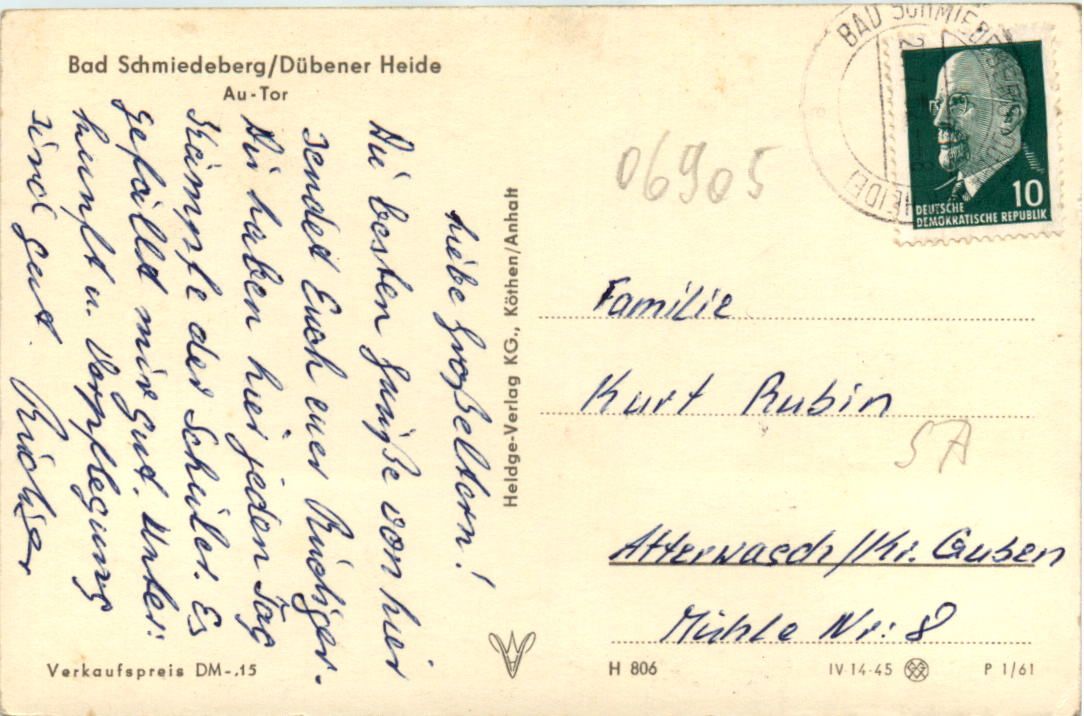 Bad Schmiedeberg/Dübener Heide
Au-Tor
Liebe Großeltern!
Die besten Grüße von hier
sendet Euch euer Rüdiger.
Wir haben hier jeden Tag
Kämpfe der Schüler. Es
gefällt mir gut. Unter:
kunft u. Verpflegung
sind gut.
Rüdiger
Verkaufspreis DM-.15
Heldge-Verlag KG., Köthen/Anhalt
BAD SCHMIEDEBERG
HEIDE
10
DEUTSCHE
DEMOKRATISCHE REPUBLIK
06905
Familie
Kurt Rubin
5A
Atterwasch/Kr. Guben
Mühle Nr: 8
H 806
IV 14-45
P 1/61